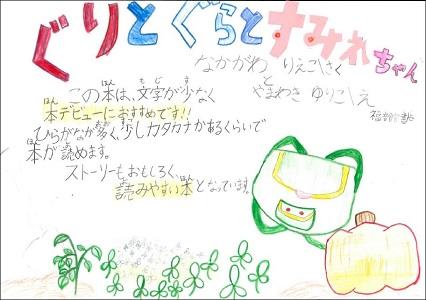 ぐりとぐらとすみれちゃん
なかがわ りえこ/さく
と
やまわき ゆりこ/え
福音館書店
この本は、文字が少なく
本デビューにおすすめです!!
ひらがなが多く、少しカタカナがあるくらいで
本が読めます。
ストーリーもおもしろく、
読みやすい本となっています。